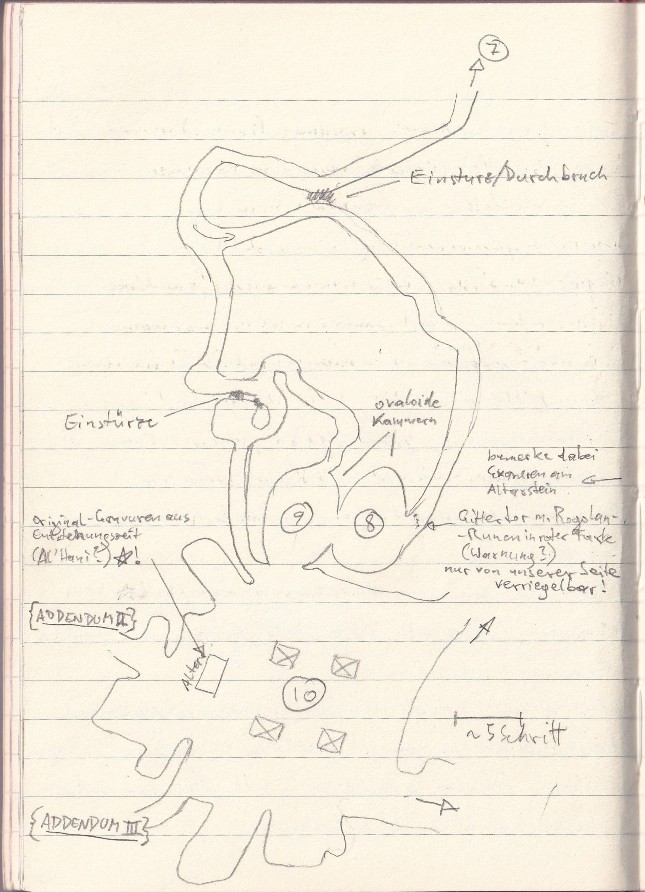 7
Einsturz/Durchbruch
Einstürze
ovaloide
Kammern
bemerke dabei
am
Altarstein
Original-Gravuren aus
Entstehungszeit
(Al'Hani?) ☆!
9
8
Gittertor m. Rogolan-
-Runen in roter Farbe
(Warnung?)
nur von unserer Seite
verriegelbar!
{ADDENDUM II}
Altar
10
~5 Schritt
{ADDENDUM III}